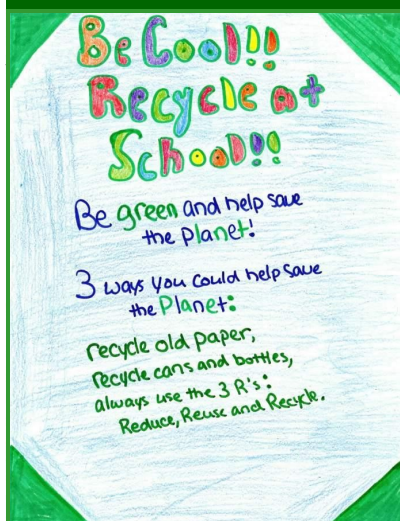 Be Cool!!
Recycle at
School!!
Be green and help save
the Planet!
3 ways you could help save
the Planet:
recycle old paper,
recycle cans and bottles,
always use the 3 R's:
Reduce, Reuse and Recycle.